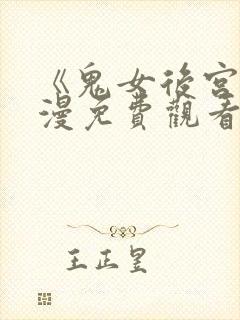 《鬼女後宮
漫免費觀看
王正昱